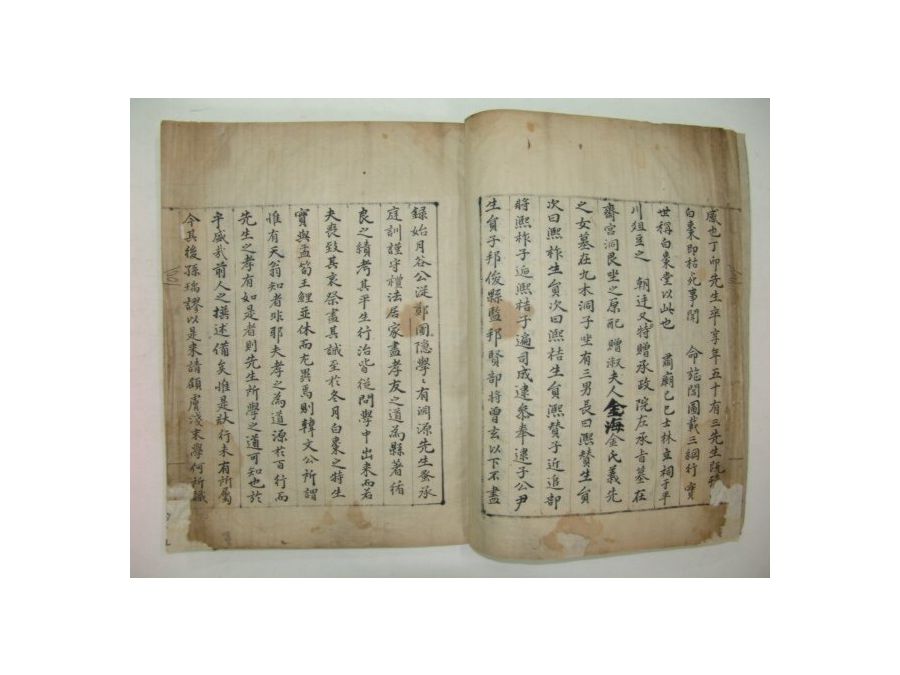 感也丁卯先生卒享年五十有三先生旣
白棗卽枯死事聞 命旌閭圖載三綱行實
世稱白棗堂以此也 肅廟己巳士林立祠于平
川俎豆之 朝廷又特贈承政院左承旨墓在
齋宮洞艮坐之原配贈淑夫人金海金氏義先
之女墓在九木洞子坐有三男長曰熙贊生員
次曰熙祚生員次曰熙桔生員熙贊子近追部
將熙祚子逈熙桔子遍司成逮叅奉逮子公尹
生員子邦俊縣監邦賢部將曾玄以下不盡
錄始月谷公從鄭圃隱學〻有淵源先生蚤承
庭訓謹守禮法居家盡孝友之道爲縣著循
良之績考其平生行治皆從問學中出來而若
夫喪致其哀祭盡其誠至於冬月白棗之特生
實與孟筍王鯉並休而尤異焉則韓文公所謂
惟有天翁知者非耶夫孝之爲道源於百行而
先生之孝有如是者則先生所學之道可知也於
乎盛哉前人之撰述備矣惟是狀行未有所屬
今其後孫瑞謬以是來請顧膚淺末學何所識